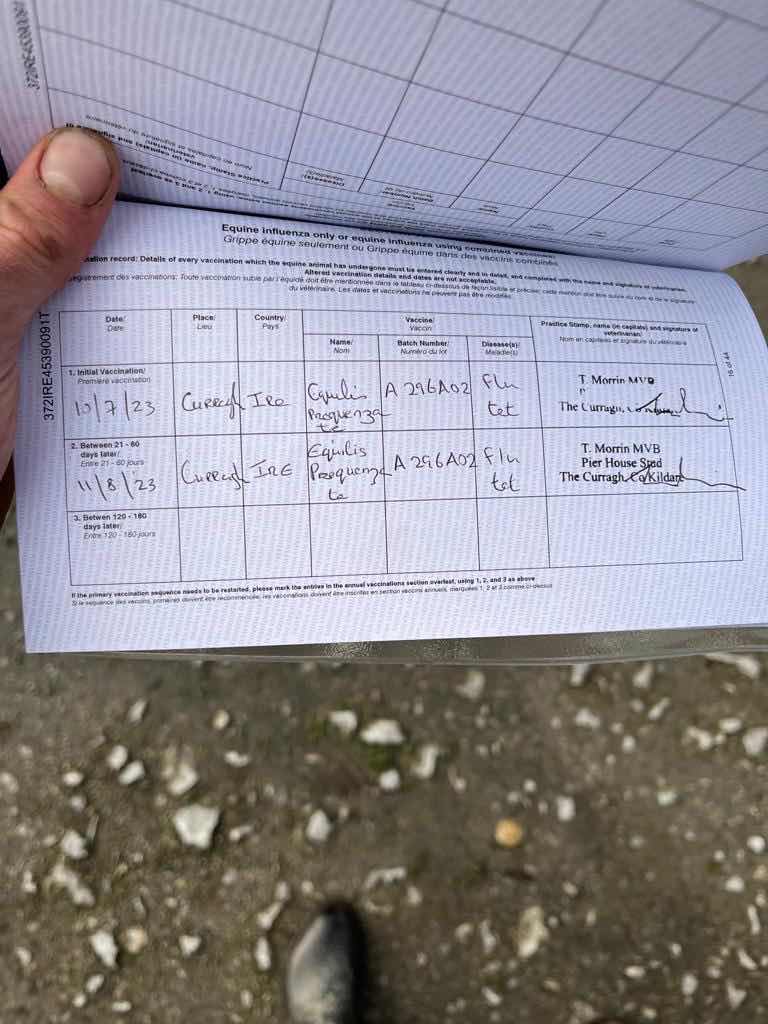 372IRE45390091T
Equine influenza only or equine influenza using combined vaccines
Grippe équine seulement ou Grippe équine dans des vaccins combinés
Details of every vaccination which the equine animal has undergone must be entered clearly and in detail, and completed with the name and signature of veterinarian.
Altered vaccination details and dates are not acceptable.
Toute vaccination subie par l'équidé doit être mentionnée dans le tableau ci-dessous de façon lisible et précise; cette mention doit être suivie du nom et de la signature
du vétérinaire. Les dates et vaccinations ne peuvent pas être modifiés.
372IRE45390091T
Date/
Date
Place/
Lieu
Country/
Pays
Vaccine/
Vaccin
Name/
Nom
Batch Number/
Numéro du lot
Disease(s)/
Maladie(s)
Practice Stamp, name (in capitals) and signature of
veterinarian/
Nom en capitales et signature du vétérinaire
1. Initial Vaccination/
Première vaccination
10/7/23
Curragh
IRE
Equilis
Prequenza
te
A296A02
Flu
tet
T. Morrin MVB
The Curragh,
2. Between 21 - 60
days later/
Entre 21 - 60 jours
11/8/23
Curragh
IRE
Equilis
Prequenza
te
A296A02
Flu
tet
T. Morrin MVB
Pier House Stud
The Curragh, Co Kildare
3. Betwen 120 - 180
days later/
Entre 120 - 180 jours
If the primary vaccination sequence needs to be restarted, please mark the entries in the annual vaccinations section overleaf, using 1, 2, and 3 as above
Si le sequence des vaccins, primaires doivent être recommencée, les vaccinations doivent être inscrites en section vaccins annuels, marquées 1, 2 et 3 comme ci-dessus